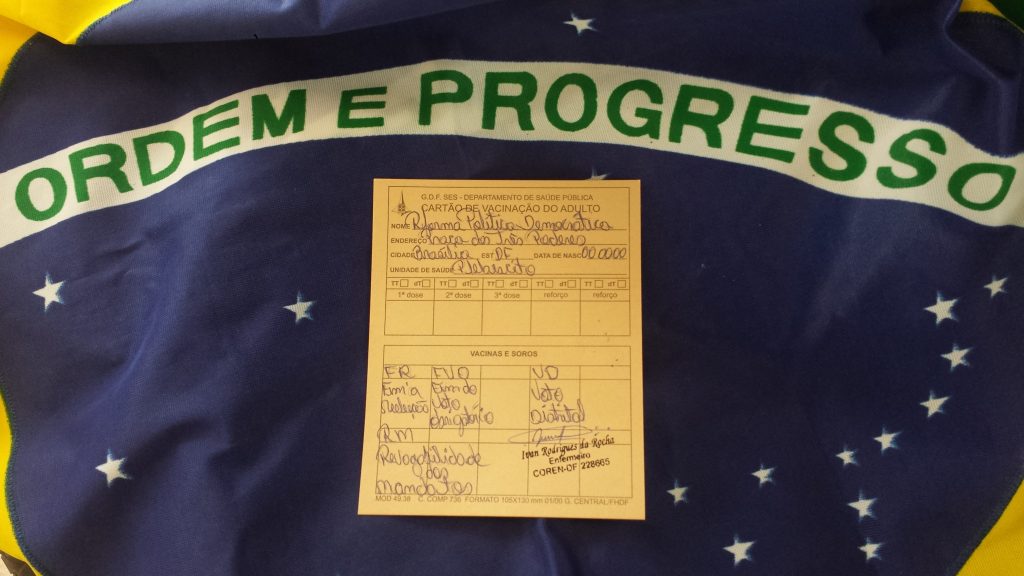 ORDEM E PROGRESSO
G.D.F. SES - DEPARTAMENTO DE SAÚDE PÚBLICA
CARTÃO DE VACINAÇÃO DO ADULTO
NOME Reforma Política Democrática
ENDEREÇO Praça dos Três Poderes
CIDADE Brasília EST DF DATA DE NASC 00.00.00
UNIDADE DE SAÚDE Plebiscito
TT dT TT dT TT dT TT dT TT dT
1ª dose 2ª dose 3ª dose reforço reforço
VACINAS E SOROS
FR FVO VD
Fim a Fim do Voto
Reeleição Voto Distrital
obrigatório
RM
Ivan Rodrigues da Rocha
Enfermeiro
COREN-DF 228665
Revogabilidade
dos
mandatos
MOD 49.38 C. COMP 736 FORMATO 105X130 mm 01/00 G. CENTRAL/FHDF